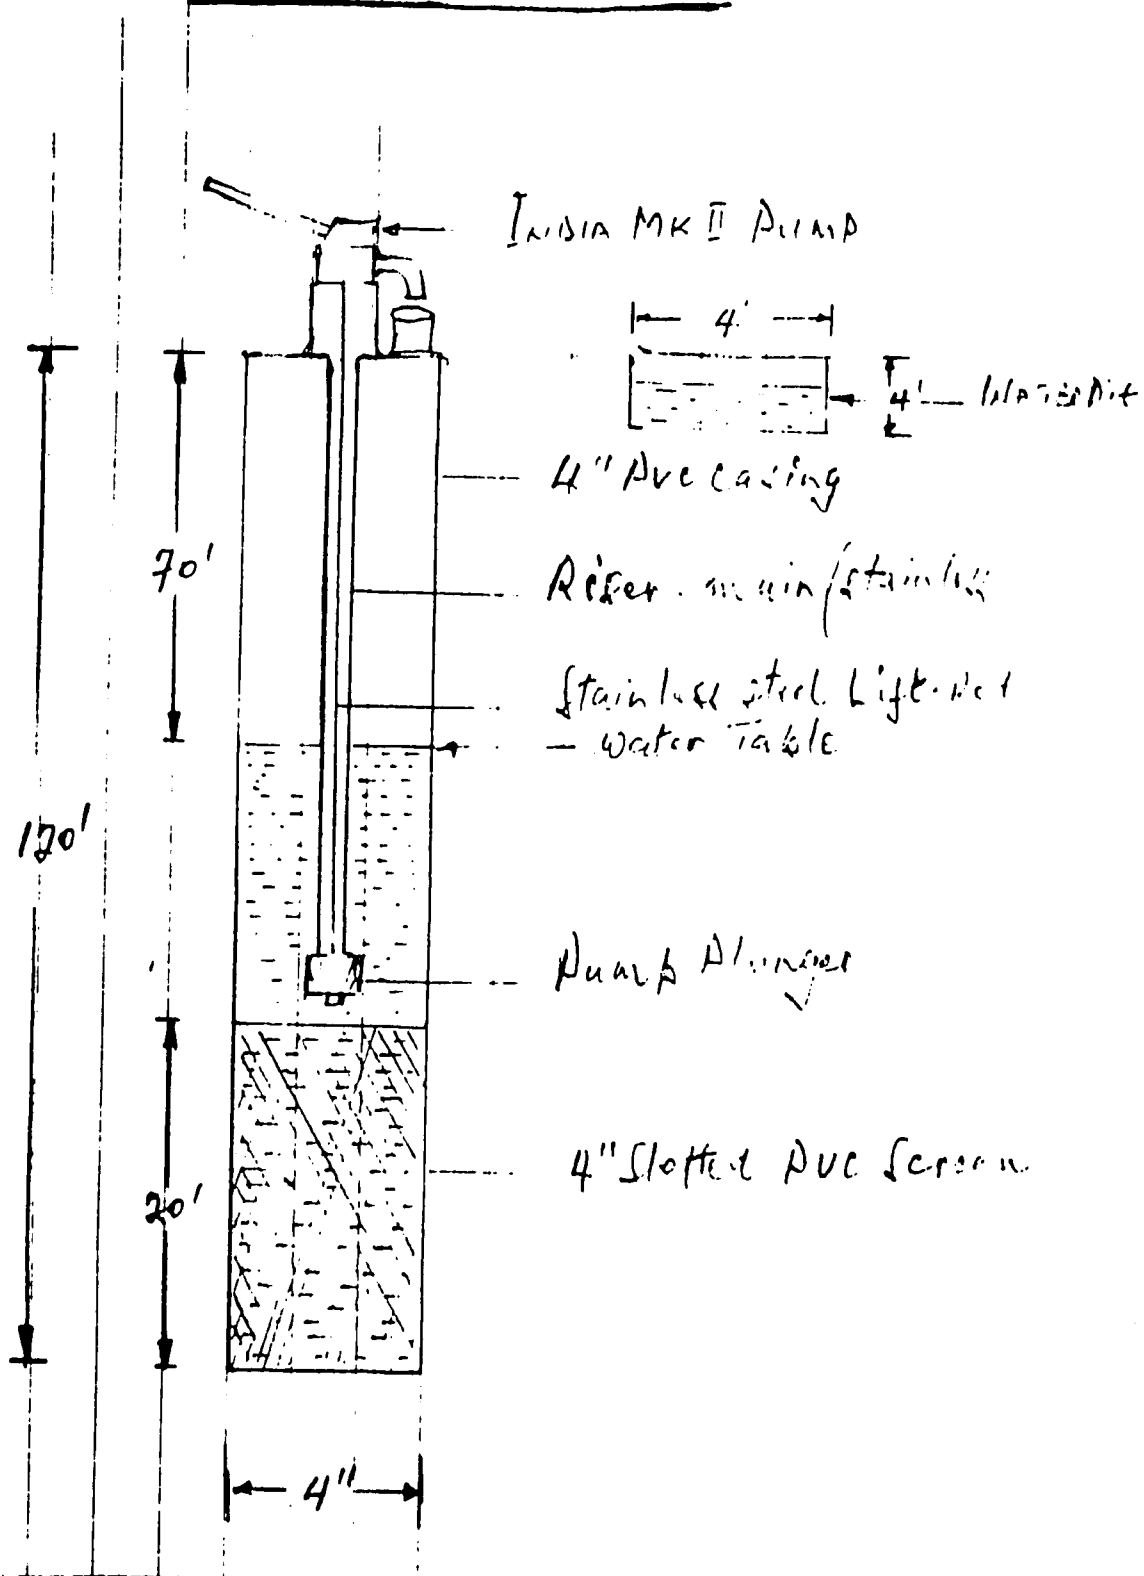 INDIA MK II PUMP
4'
4'
4" PVC Casing
70'
Riser main/stainless
Stainless steel Lift Rod
Water Table
120'
Pump Plunger
20'
4" Slotted PVC Screen
4"